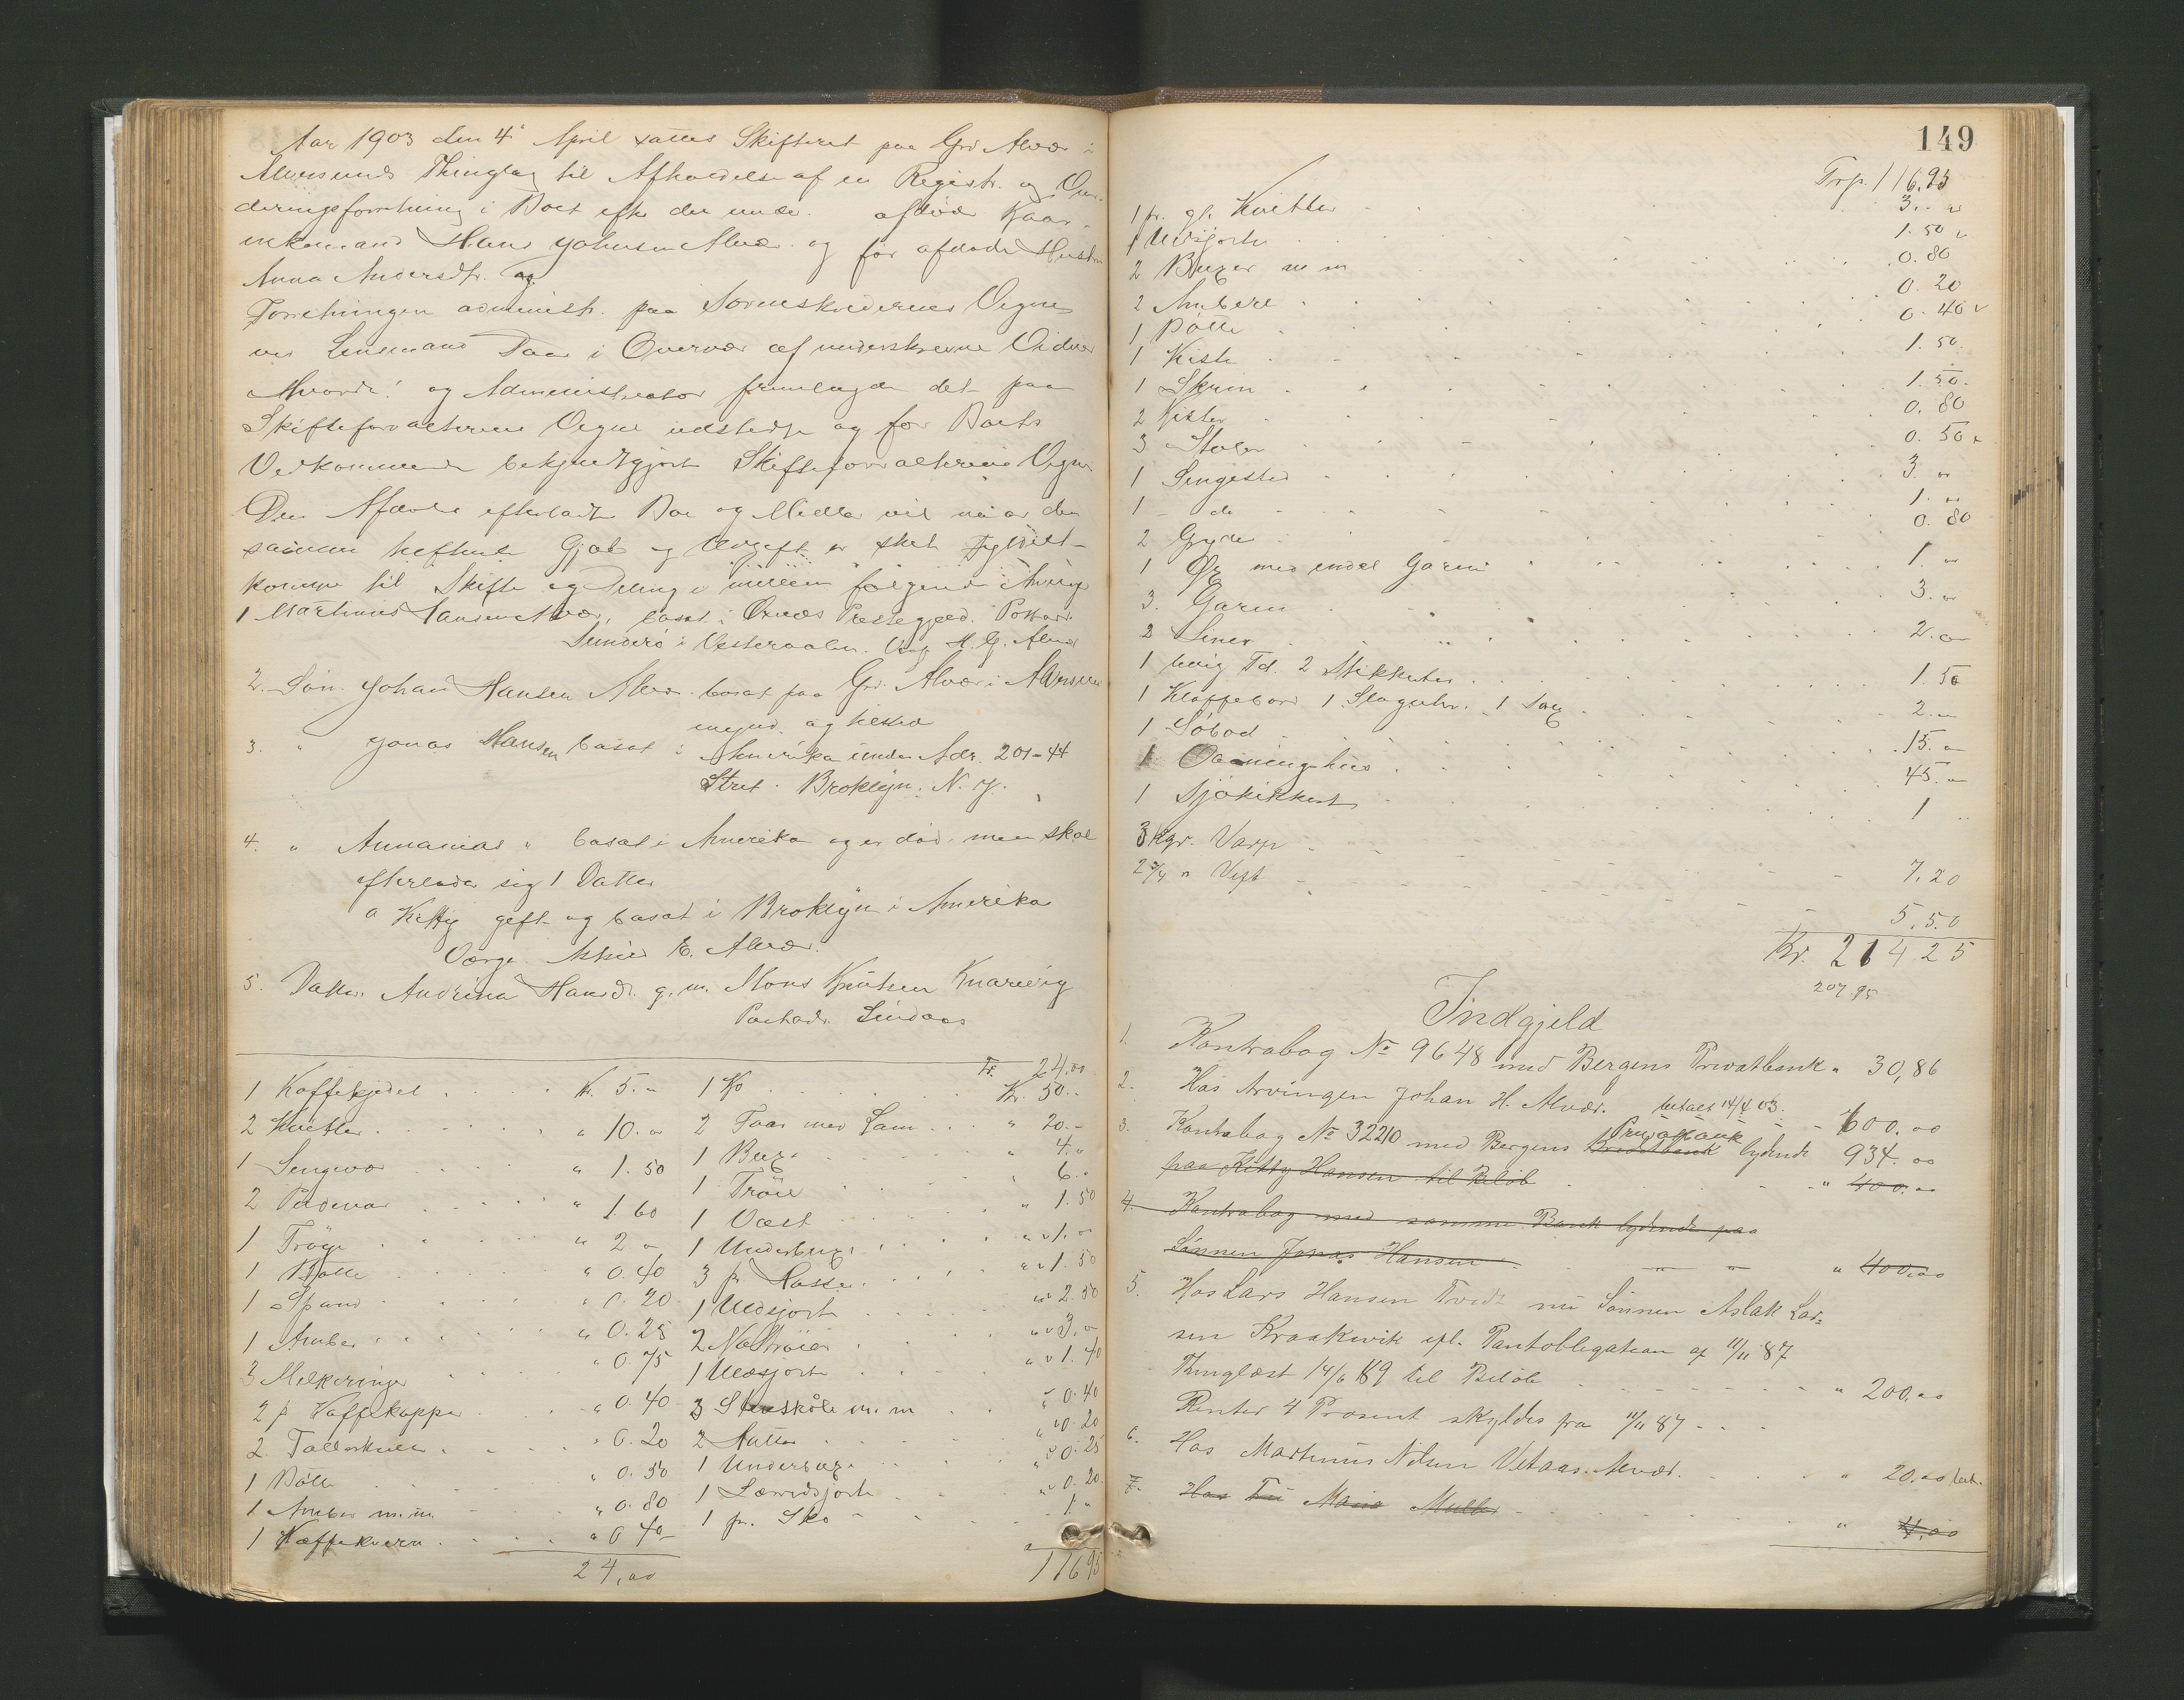 Aar 1903 den 4' April sattes Skifteret paa Grd Alvær i
Alversunds Thinglag til Afholdelse af en Registr. og Vur-
deringsforretning i Boet efter den under afdøde Kaar-
enkemand Hans Johnsen Alvær og før afdøde Hustru
Anna Andersdtr. og
Forretningen administr. paa Sorenskriverens Vegne
ved Lensmand Daae i Overvær af underskrevne Vidner
Hvorda! og Administrator fremlagde det paa
Skifteforvalterens Vegne udstedte og for Boets
Vedkommende bekjendtgjort Skifteforvalterens Vegne
Den Afdødes efterladte Bo og Midler vil naar den
samme heftende Gjæld og Udgift er sket Fyldest
komme til Skifte og Deling i mellem følgende Arvinge
1 Martinus Hansen Alvær, bosat i Præstegjeld. Postadr.
i Vesteraalen. H. G. Alvær
2. Søn Johan Hansen Alvær bosat paa Grd. Alvær i Alversund
mynd. og tilsted
3. " Jonas Hansen bosat i Amerika under Adr. 201-44
Stret. Broklyn. N. Y.
4. " Annanias " bosat i Amerika og er død. men skal
efterlade sig 1 Datter
a Kitty gift og bosat i Broklyn i Amerika
Værge E. Alvær.
5. Datter Andrina Hansdr. g. m. Mons Knutsen Knarvig
Postadr. Lindaas
1 Kaffekjedel Kr. 5. "
2 Kvitler " 10. "
1 " 1. 50
2 " 1 60
1 Trøye " 2 "
1 Bøtte " 0. 40
1 Spand " 0. 20
1 Amber " 0. 25
3 Melkeringe " 0. 75
2 p Kaffekopper " 0. 40
2. Tallerkner " 0. 20
1 Bøtte " 0. 50
1 Amber m.m. " 0. 80
1 Kaffekvern " 0 40
24,00
Tr. 24.00
1 Ko Kr. 50. "
2 Faar med Lam " 20. "
1 Buxe " 4. "
1 Trøie " 6. "
1 Vest " 1. 50
1 Underbuxe " 1. "
3 p Hoser " 1. 50
1 Uldsjorte " 2. 50
2 Nattrøier " 3. "
1 Uldsjorte " 1. 40
3 Stenskåle m. m " 0. 40
2 Hatter " 0. 20
1 Underbuxe " 0. 25
1 Lærredsjorte " 0. 20
1 pr. Sko 1. "
116 95
149
Trp. 116.95
1 pr. gl. Kvitler 3. "
1 Uldsjorte 1. 50
2 Buxer m m 0. 80
2 Ambere 0. 20
1 Bøtte 0. 40
1 Kiste 1. 50.
1 Skrin 1. 50.
2 Kister 0. 80
3 Stoler 0. 50
1 Sengested 3 "
1 do 1. "
2 Gryder 0. 80
1 Øx med endel Garn 1. "
3. Garen 3. "
2 Liner 2. "
1 Td. 2 1. 50
1 Klappebord 1 Slaguhr. 1 Sag 2. "
1 Søbod 15. "
1 Vaaningshus 45. "
1 Sjøkikkert 1 "
3 kgr. Varp 7.20
2 3/4 " Veft 5.50
Kr. 214 25
207.95
Indgjeld
1. Kontrabog No 9648 med Bergens Privatbank " 30,86
2. Hos Arvingen Johan H. Alvær. betalt 14/4 03. 600.00
3. Kontrabog No 32210 med Bergens Kreditbank Privatbank lydende 934.00
paa Kitty Hansen til Beløb " 400.00
4. Kontrabog med samme Bank lydende paa
Sønnen Jonas Hansen " 400.00
5. Hos Lars Hansen nu Sønnen Aslak Lar-
sen Kraakevik ifl. Pantobligation af 11/11 87
Thinglæst 14/6 89 til Beløb " 200.00
Renter 4 Prosent skyldes fra 11/11 87
6. Hos Martinus Nilsen Vetaas. Alvær. " 20.00 bet.
7. Hos Maria Müller " 4,00